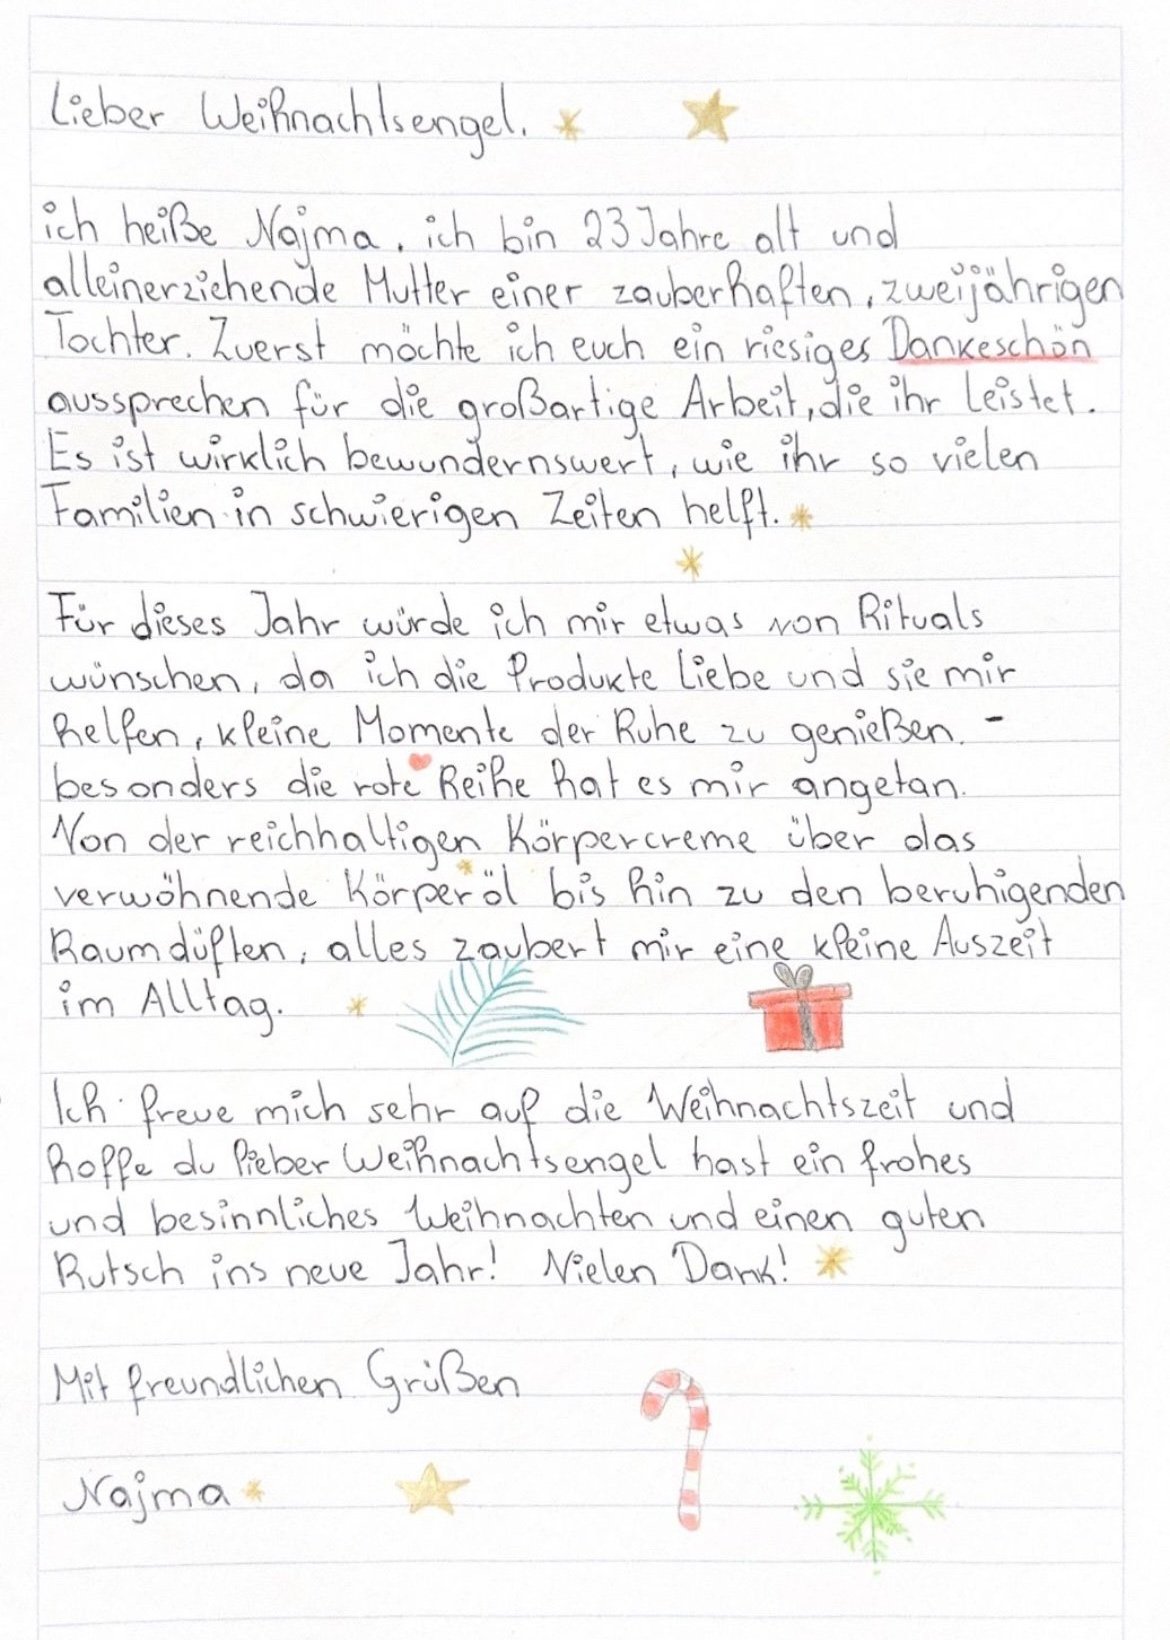 Lieber Weihnachtsengel.
ich heiße Najma, ich bin 23 Jahre alt und
alleinerziehende Mutter einer zauberhaften, zweijährigen
Tochter. Zuerst möchte ich euch ein riesiges Dankeschön
aussprechen für die großartige Arbeit, die ihr leistet.
Es ist wirklich bewundernswert, wie ihr so vielen
Familien in schwierigen Zeiten helft.
Für dieses Jahr würde ich mir etwas von Rituals
wünschen, da ich die Produkte liebe und sie mir
helfen, kleine Momente der Ruhe zu genießen. -
besonders die rote Reihe hat es mir angetan.
Von der reichhaltigen Körpercreme über das
verwöhnende Körperöl bis hin zu den beruhigenden
Raumdüften, alles zaubert mir eine kleine Auszeit
im Alltag.
Ich freue mich sehr auf die Weihnachtszeit und
hoffe du lieber Weihnachtsengel hast ein frohes
und besinnliches Weihnachten und einen guten
Rutsch ins neue Jahr! Vielen Dank!
Mit freundlichen Grüßen
Najma